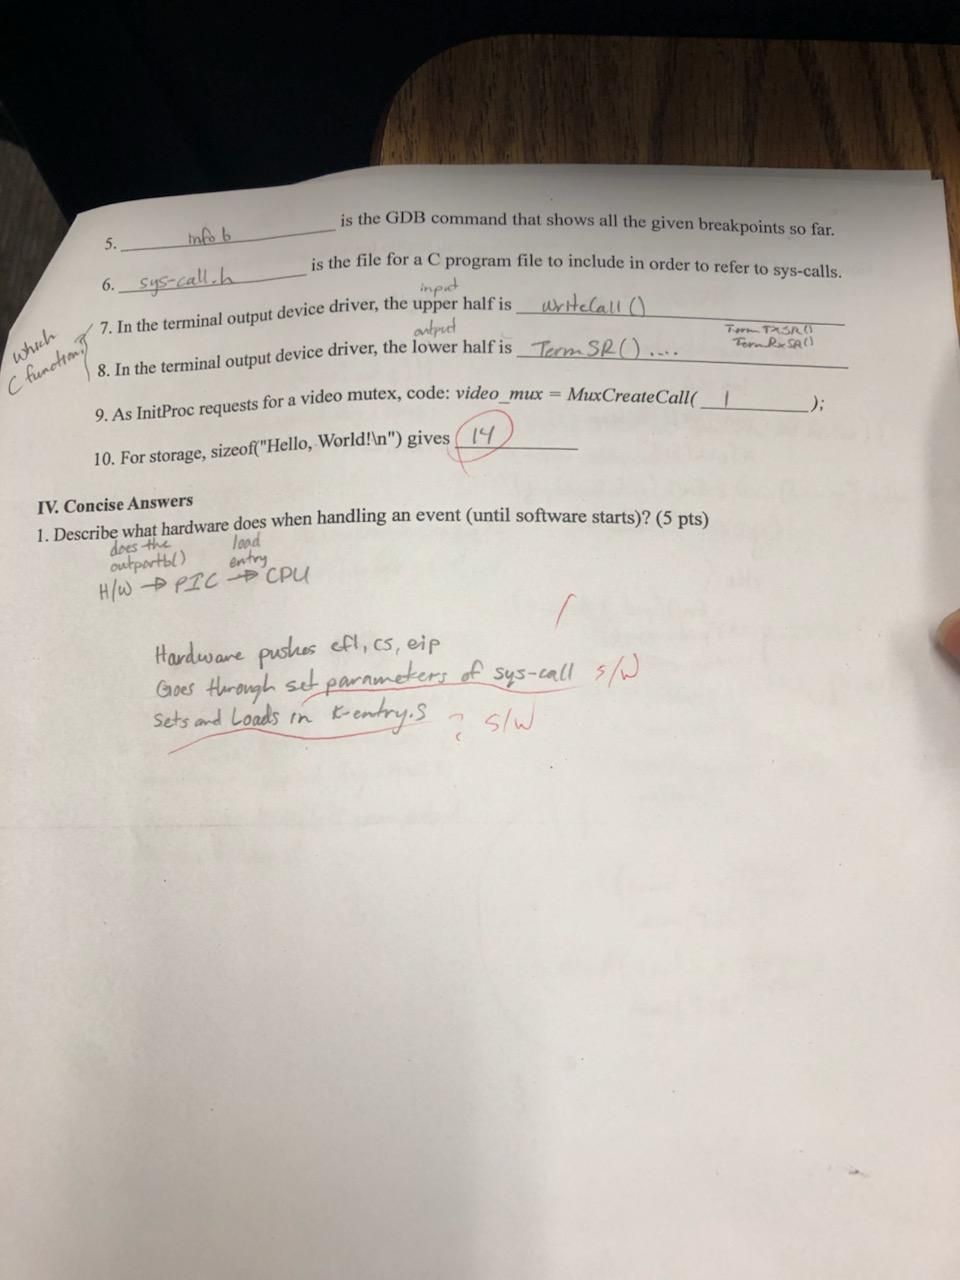 5. info b is the GDB command that shows all the given breakpoints so far.
6. sys-call.h is the file for a C program file to include in order to refer to sys-calls.
input
7. In the terminal output device driver, the upper half is WriteCall()
Which
C function?
output
TermTxSR()
TermRxSR()
8. In the terminal output device driver, the lower half is TermSR() ....
9. As InitProc requests for a video mutex, code: video_mux = MuxCreateCall( 1 );
10. For storage, sizeof("Hello, World!\n") gives 14
IV. Concise Answers
1. Describe what hardware does when handling an event (until software starts)? (5 pts)
does the load
outportb() entry
H/W → PIC → CPU
Hardware pushes efl, cs, eip
Goes through set parameters of sys-call S/W
Sets and Loads in K-entry.S ? S/W